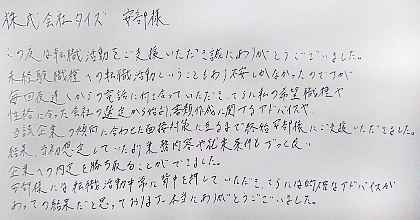 株式会社タイズ 安部様
この度は転職活動をご支援いただき誠にありがとうございました。
未経験職種への転職活動ということもあり不安しかなかったのですが
毎回夜遅くからの電話に付き合っていただき、さらに私の希望職種や
性格に合った会社の選定から始まり書類作成に関するアドバイスや、
当該企業の傾向に合わせた面接対策に至るまで終始安部様にご支援いただきました。
結果、当初想定していたより業務内容や就業条件もずっと良い
企業への内定を勝ち取ることができました。
安部様には転職活動中常に背中を押していただき、さらには的確なアドバイスが
あっての結果だと思っております。本当にありがとうございました。